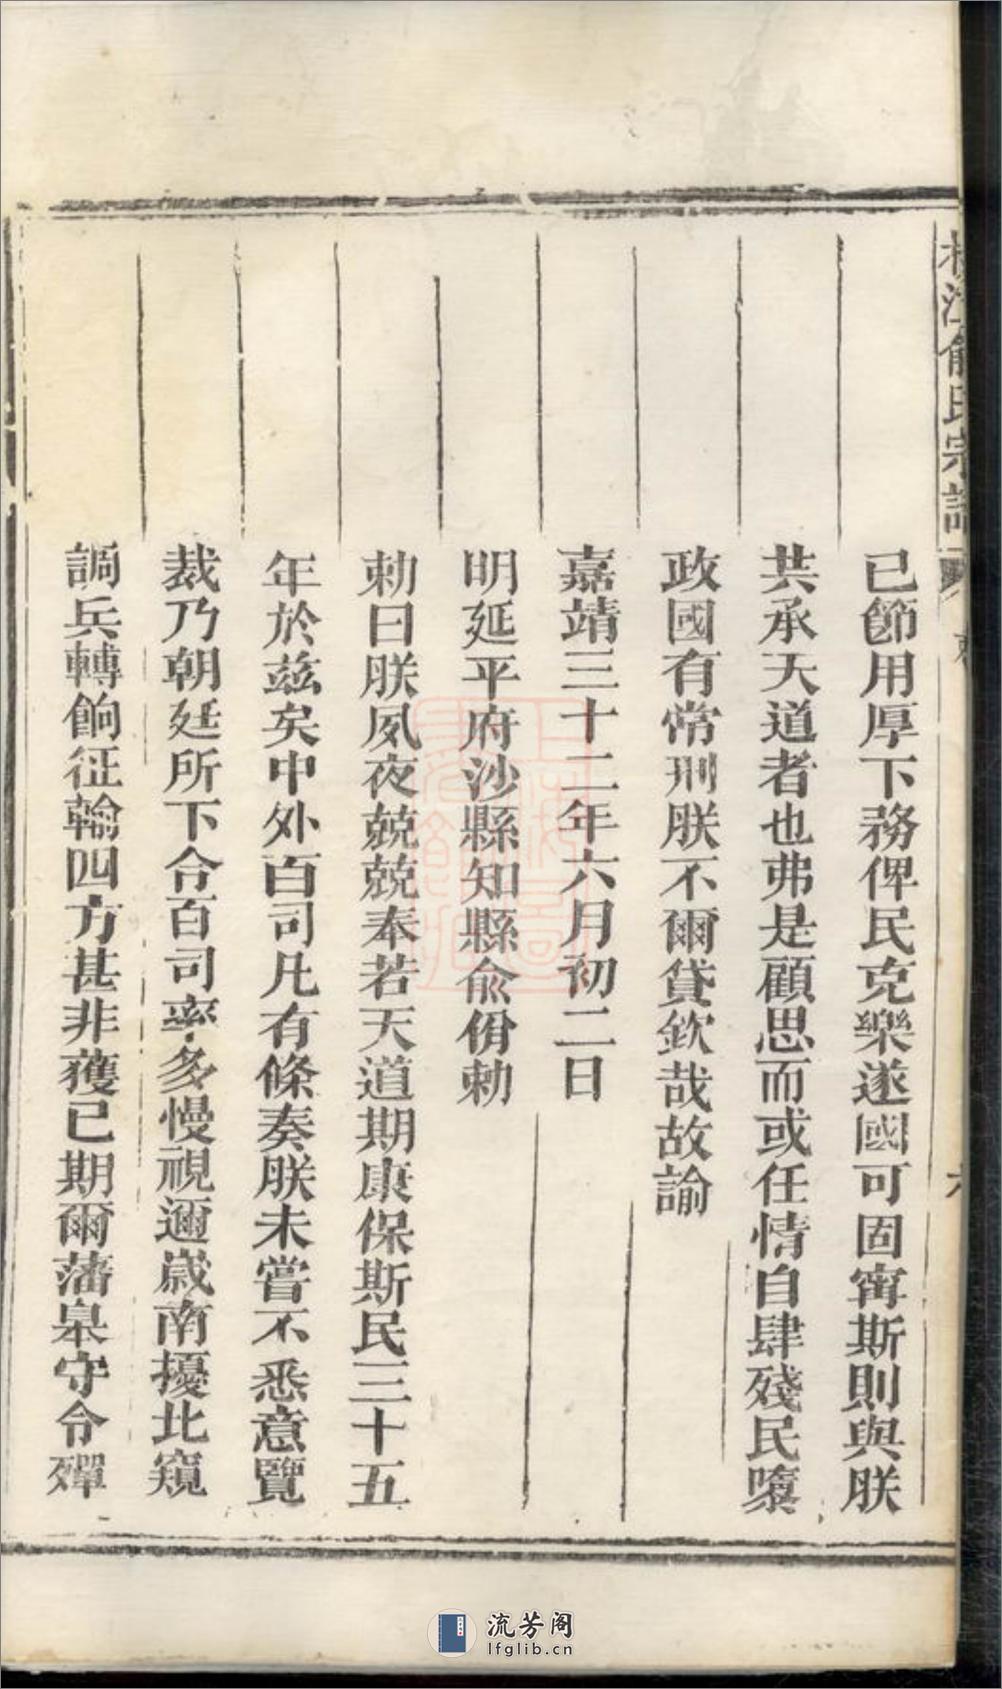 江俞氏宗譜
已節用厚下務俾民克樂遂國可固寗斯則與朕
共承天道者也弗是顧思而或任情自肆殘民隳
政國有常刑朕不爾貸欽哉故諭
嘉靖三十二年六月初二日
明延平府沙縣知縣俞㑗勅
勅曰朕夙夜兢兢奉若天道期康保斯民三十五
年於兹矣中外百司凡有條奏朕未嘗不悉意覽
裁乃朝廷所下令百司率多慢視邇歲南擾北窺
調兵轉餉征輸四方甚非獲已期爾藩臬守令殫
流芳阁
lfglib.cn